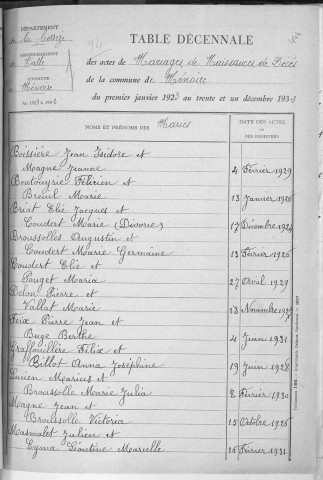 DÉPARTEMENT
de la Corrèze
TABLE DÉCENNALE
ARRONDISSEMENT
de Tulle
des actes de Mariages de Naissances de Décès
COMMUNE
de Ménoire
de la commune de Ménoire
du premier janvier 1923 au trente et un décembre 193
NOMS ET PRÉNOMS DES Mariés
DATE DES ACTES
DES REGISTRES
Boissière Jean Isidore et
Magne Jeanne 4 Février 1929
Boutouyrie Félicien et
Breuil Marie 13 Janvier 1926
Briat Elie Jacques et
Coudert Marie (Divorce) 17 Décembre 1924
Broussolles Augustin et
Coudert Marie Germaine 13 Février 1926
Coudert Elie et
Pouget Maria 27 Avril 1929
Delon Pierre et
Vallat Marie 18 Novembre
Feix Pierre Jean et
Buge Berthe 4 Juin 1931
Graffouillère Félix et
Billot Anna Joséphine 19 Juin 1928
Lucien Marius et
Broussolle Marie Julia 8 Février 1930
Magne Jean et
Broussolle Victoria 15 Octobre 1926
Masmalet Julien et
Eyma Léontine Marcelle 16 Février 1931